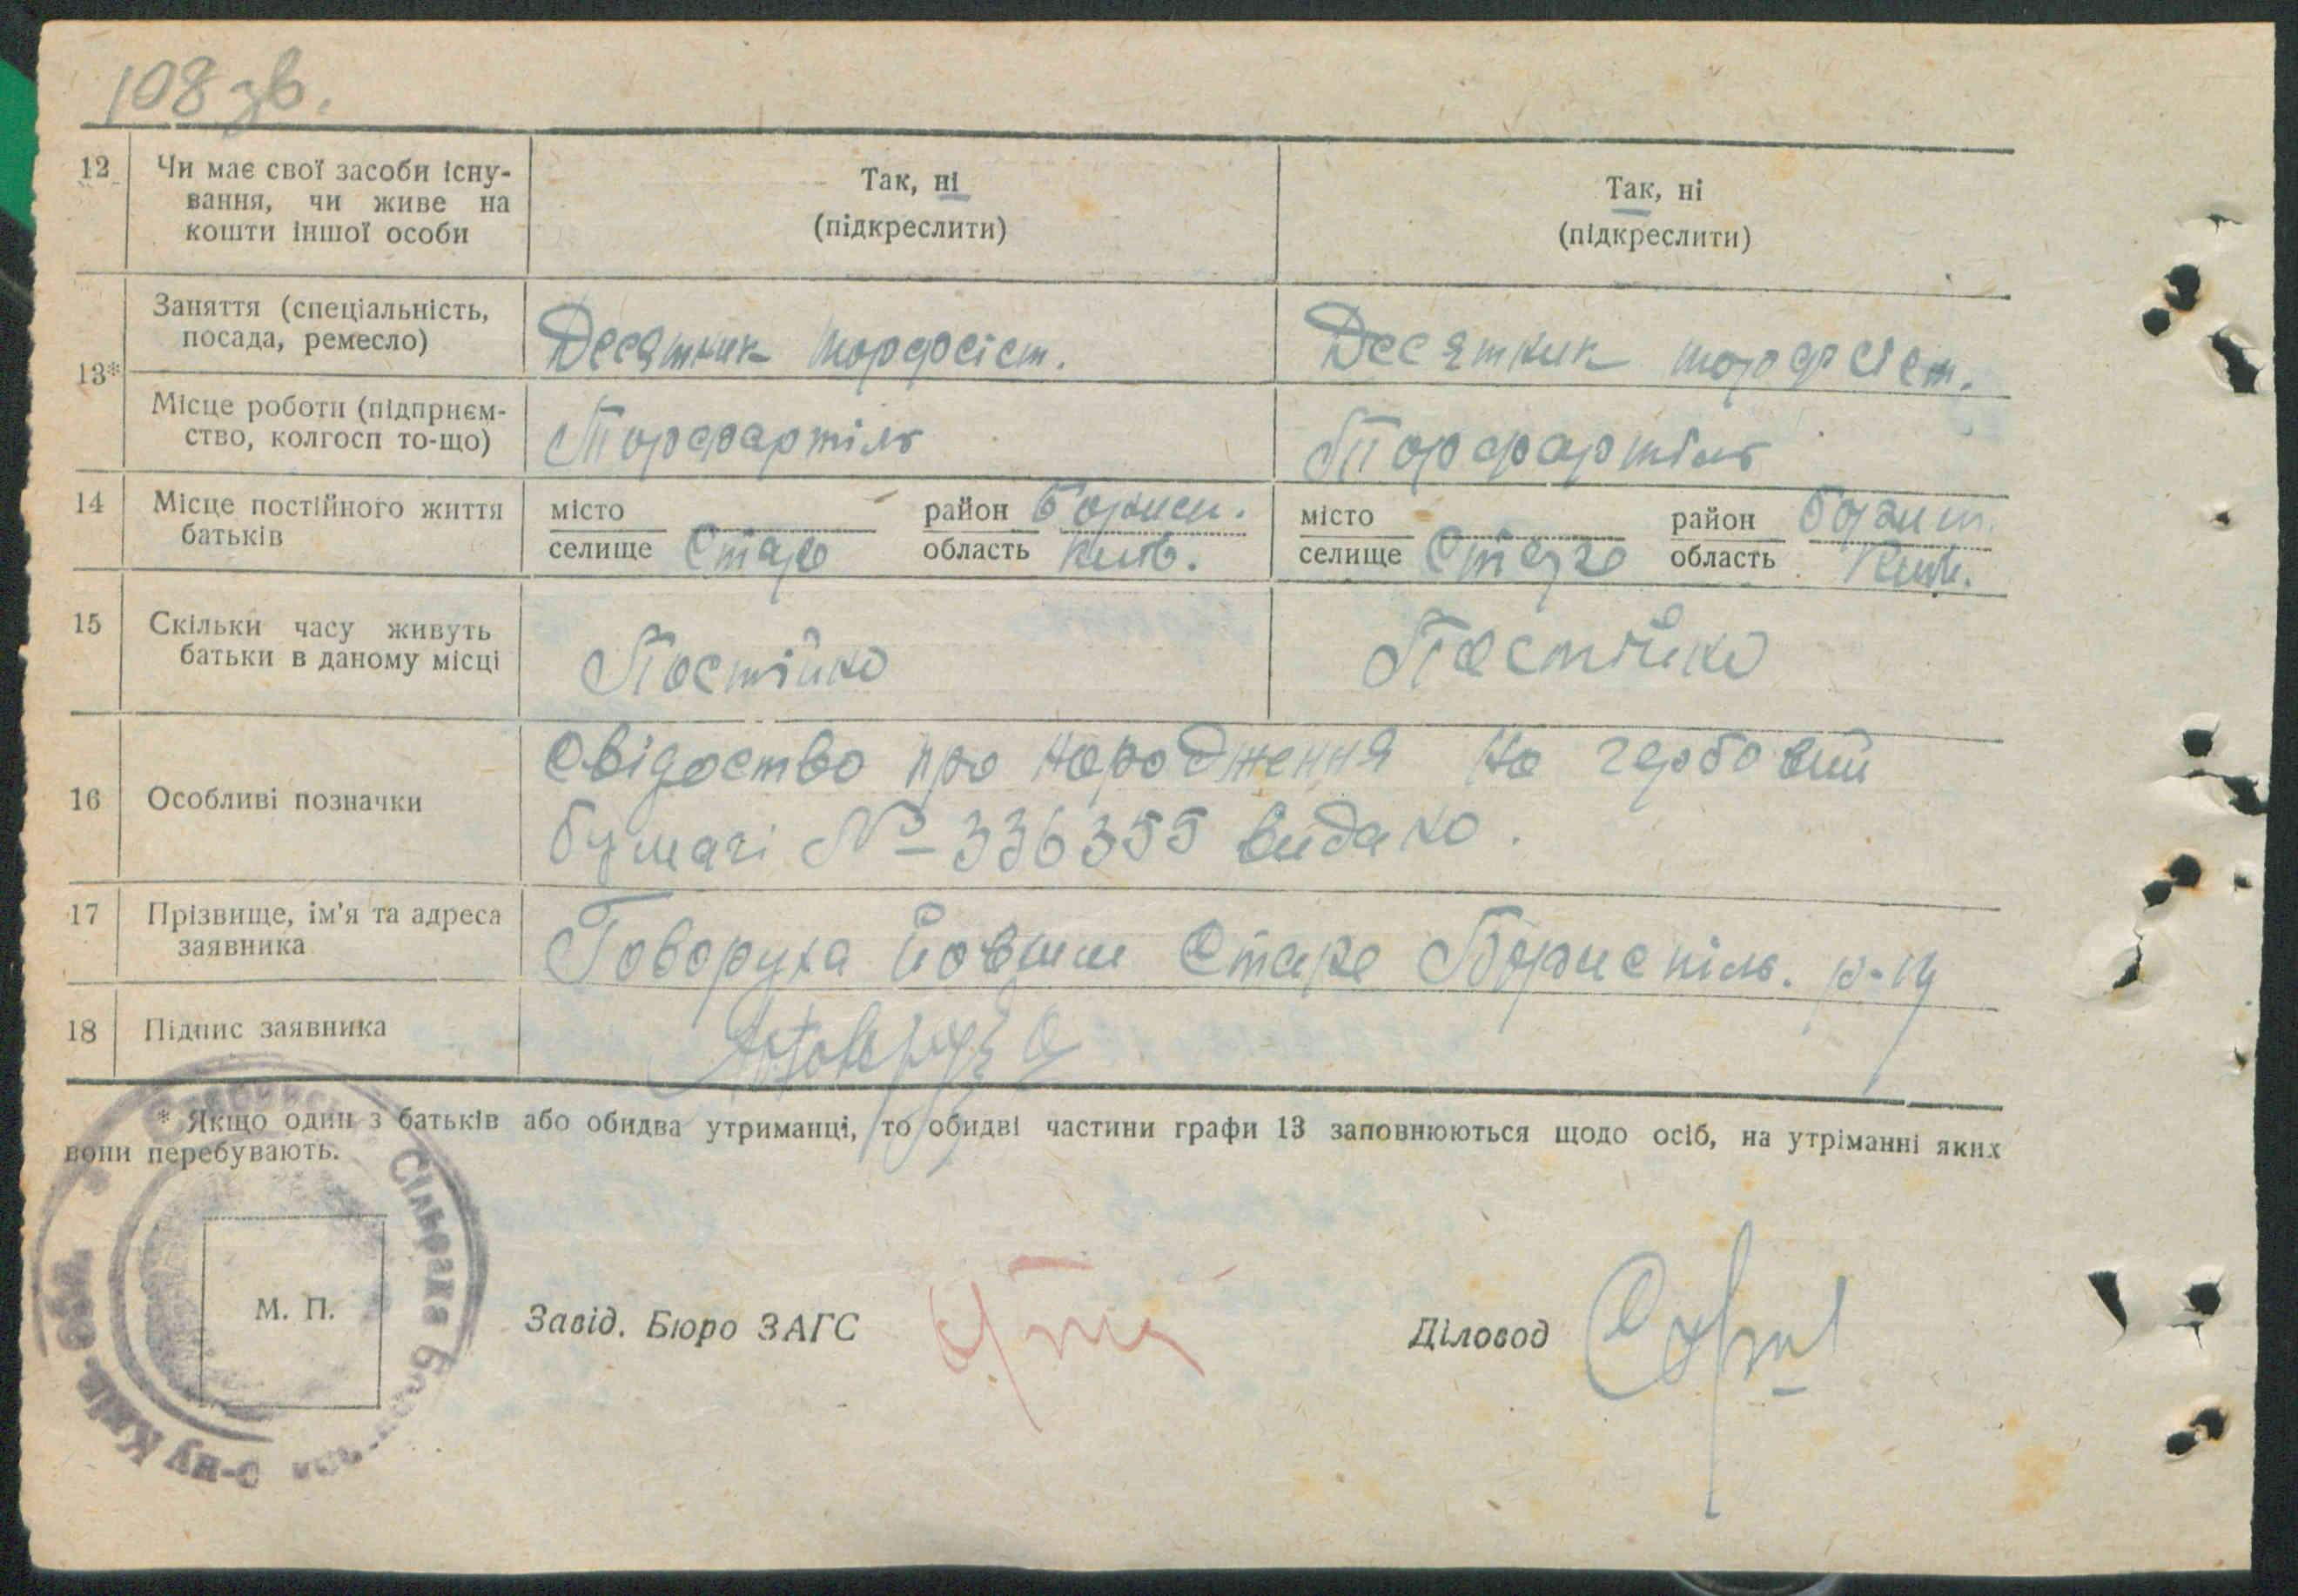 108 зв.
12 Чи має свої засоби існу-
вання, чи живе на
кошти іншої особи
Так, ні
(підкреслити)
Так, ні
(підкреслити)
13*
Заняття (спеціальність,
посада, ремесло)
Десятник торфсіст.
Десятник торфсіст.
Місце роботи (підприєм-
ство, колгосп то-що)
Торфартіль
Торфартіль
14 Місце постійного життя
батьків
місто
селище Старе
район Борисп.
область Київ.
місто
селище Старе
район Борисп.
область Київ.
15 Скільки часу живуть
батьки в даному місці
Постійно
Постійно
16 Особливі позначки
Свідоство про народження на гербовий
бумагі № 336355 видано.
17 Прізвище, ім'я та адреса
заявника
Говоруха Йовтим Старе Бориспіль. р-ну
18 Підпис заявника
* Якщо один з батьків або обидва утриманці, то обидві частини графи 13 заповнюються щодо осіб, на утріманні яких
вони перебувають.
Сільрада
р-ну Київ. обл.
М. П.
Завід. Бюро ЗАГС
Діловод